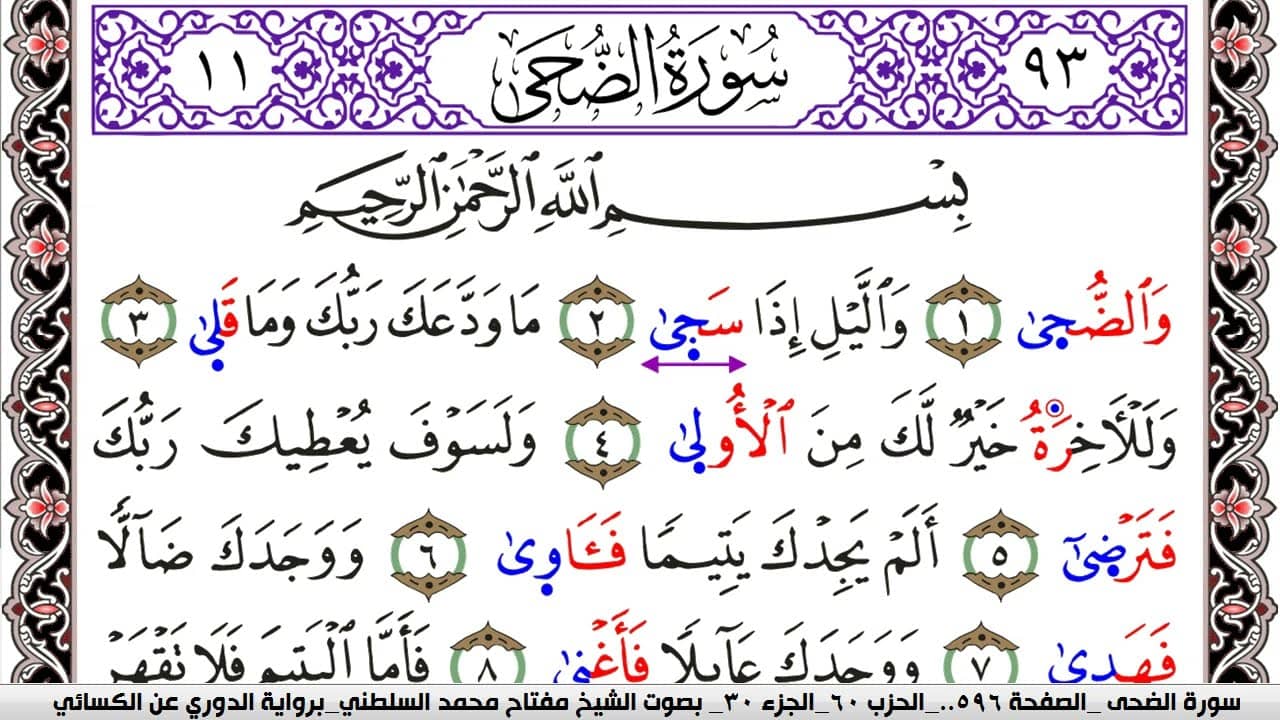 ٩٣ سُورَةُ الضُّحَى ١١
بِسْمِ ٱللَّهِ ٱلرَّحْمَٰنِ ٱلرَّحِيمِ
وَٱلضُّحٜىٰ ١ وَٱلَّيْلِ إِذَا سَجٜىٰ ٢ مَا وَدَّعَكَ رَبُّكَ وَمَا قَلٜىٰ ٣
وَلَلْأَخِرَةُ خَيْرٌ لَّكَ مِنَ ٱلْأُولٜىٰ ٤ وَلَسَوْفَ يُعْطِيكَ رَبُّكَ
فَتَرْضٜىٰٓ ٥ أَلَمْ يَجِدْكَ يَتِيمًا فَـَٔاوٜىٰ ٦ وَوَجَدَكَ ضَآلًّا
فَهَدٜىٰ ٧ وَوَجَدَكَ عَآئِلًا فَأَغْنٜىٰ ٨ فَأَمَّا ٱلْيَتِيمَ فَلَا تَقْهَرْ
سورة الضحى _الصفحة ٥٩٦.._الحزب ٦٠_الجزء ٣٠_ بصوت الشيخ مفتاح محمد السلطني_برواية الدوري عن الكسائي